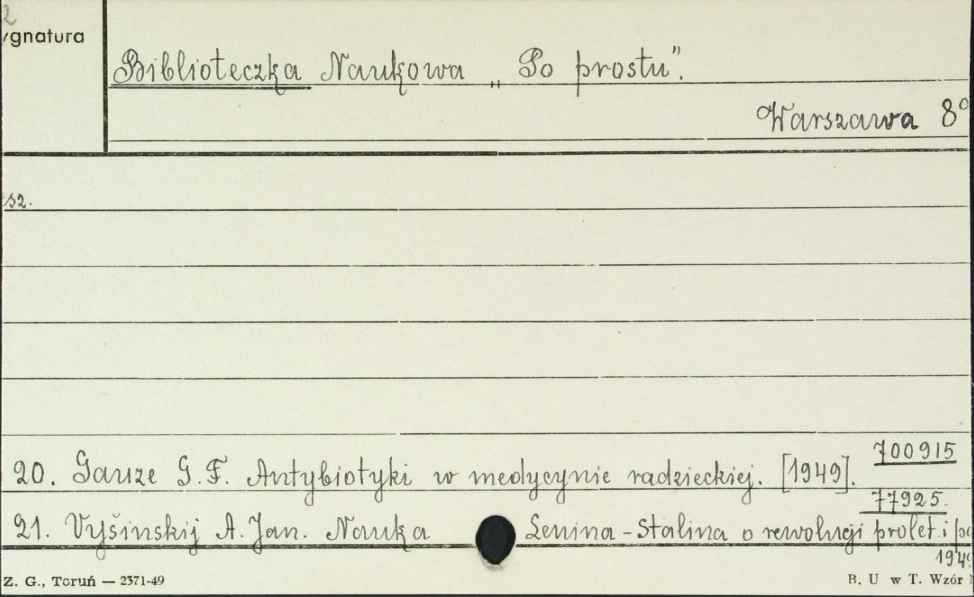 2
ygnatura
Biblioteczka Naukowa „Po prostu".
Warszawa 8°
sz.
700915
20. Gauze G.F. Antybiotyki w medycynie radzieckiej. [1949].
77925.
21. Vyšinskij A. Jan. Nauka Lenina-Stalina o rewolucji prolet. i
Z. G., Toruń — 2371-49
B. U w T. Wzór